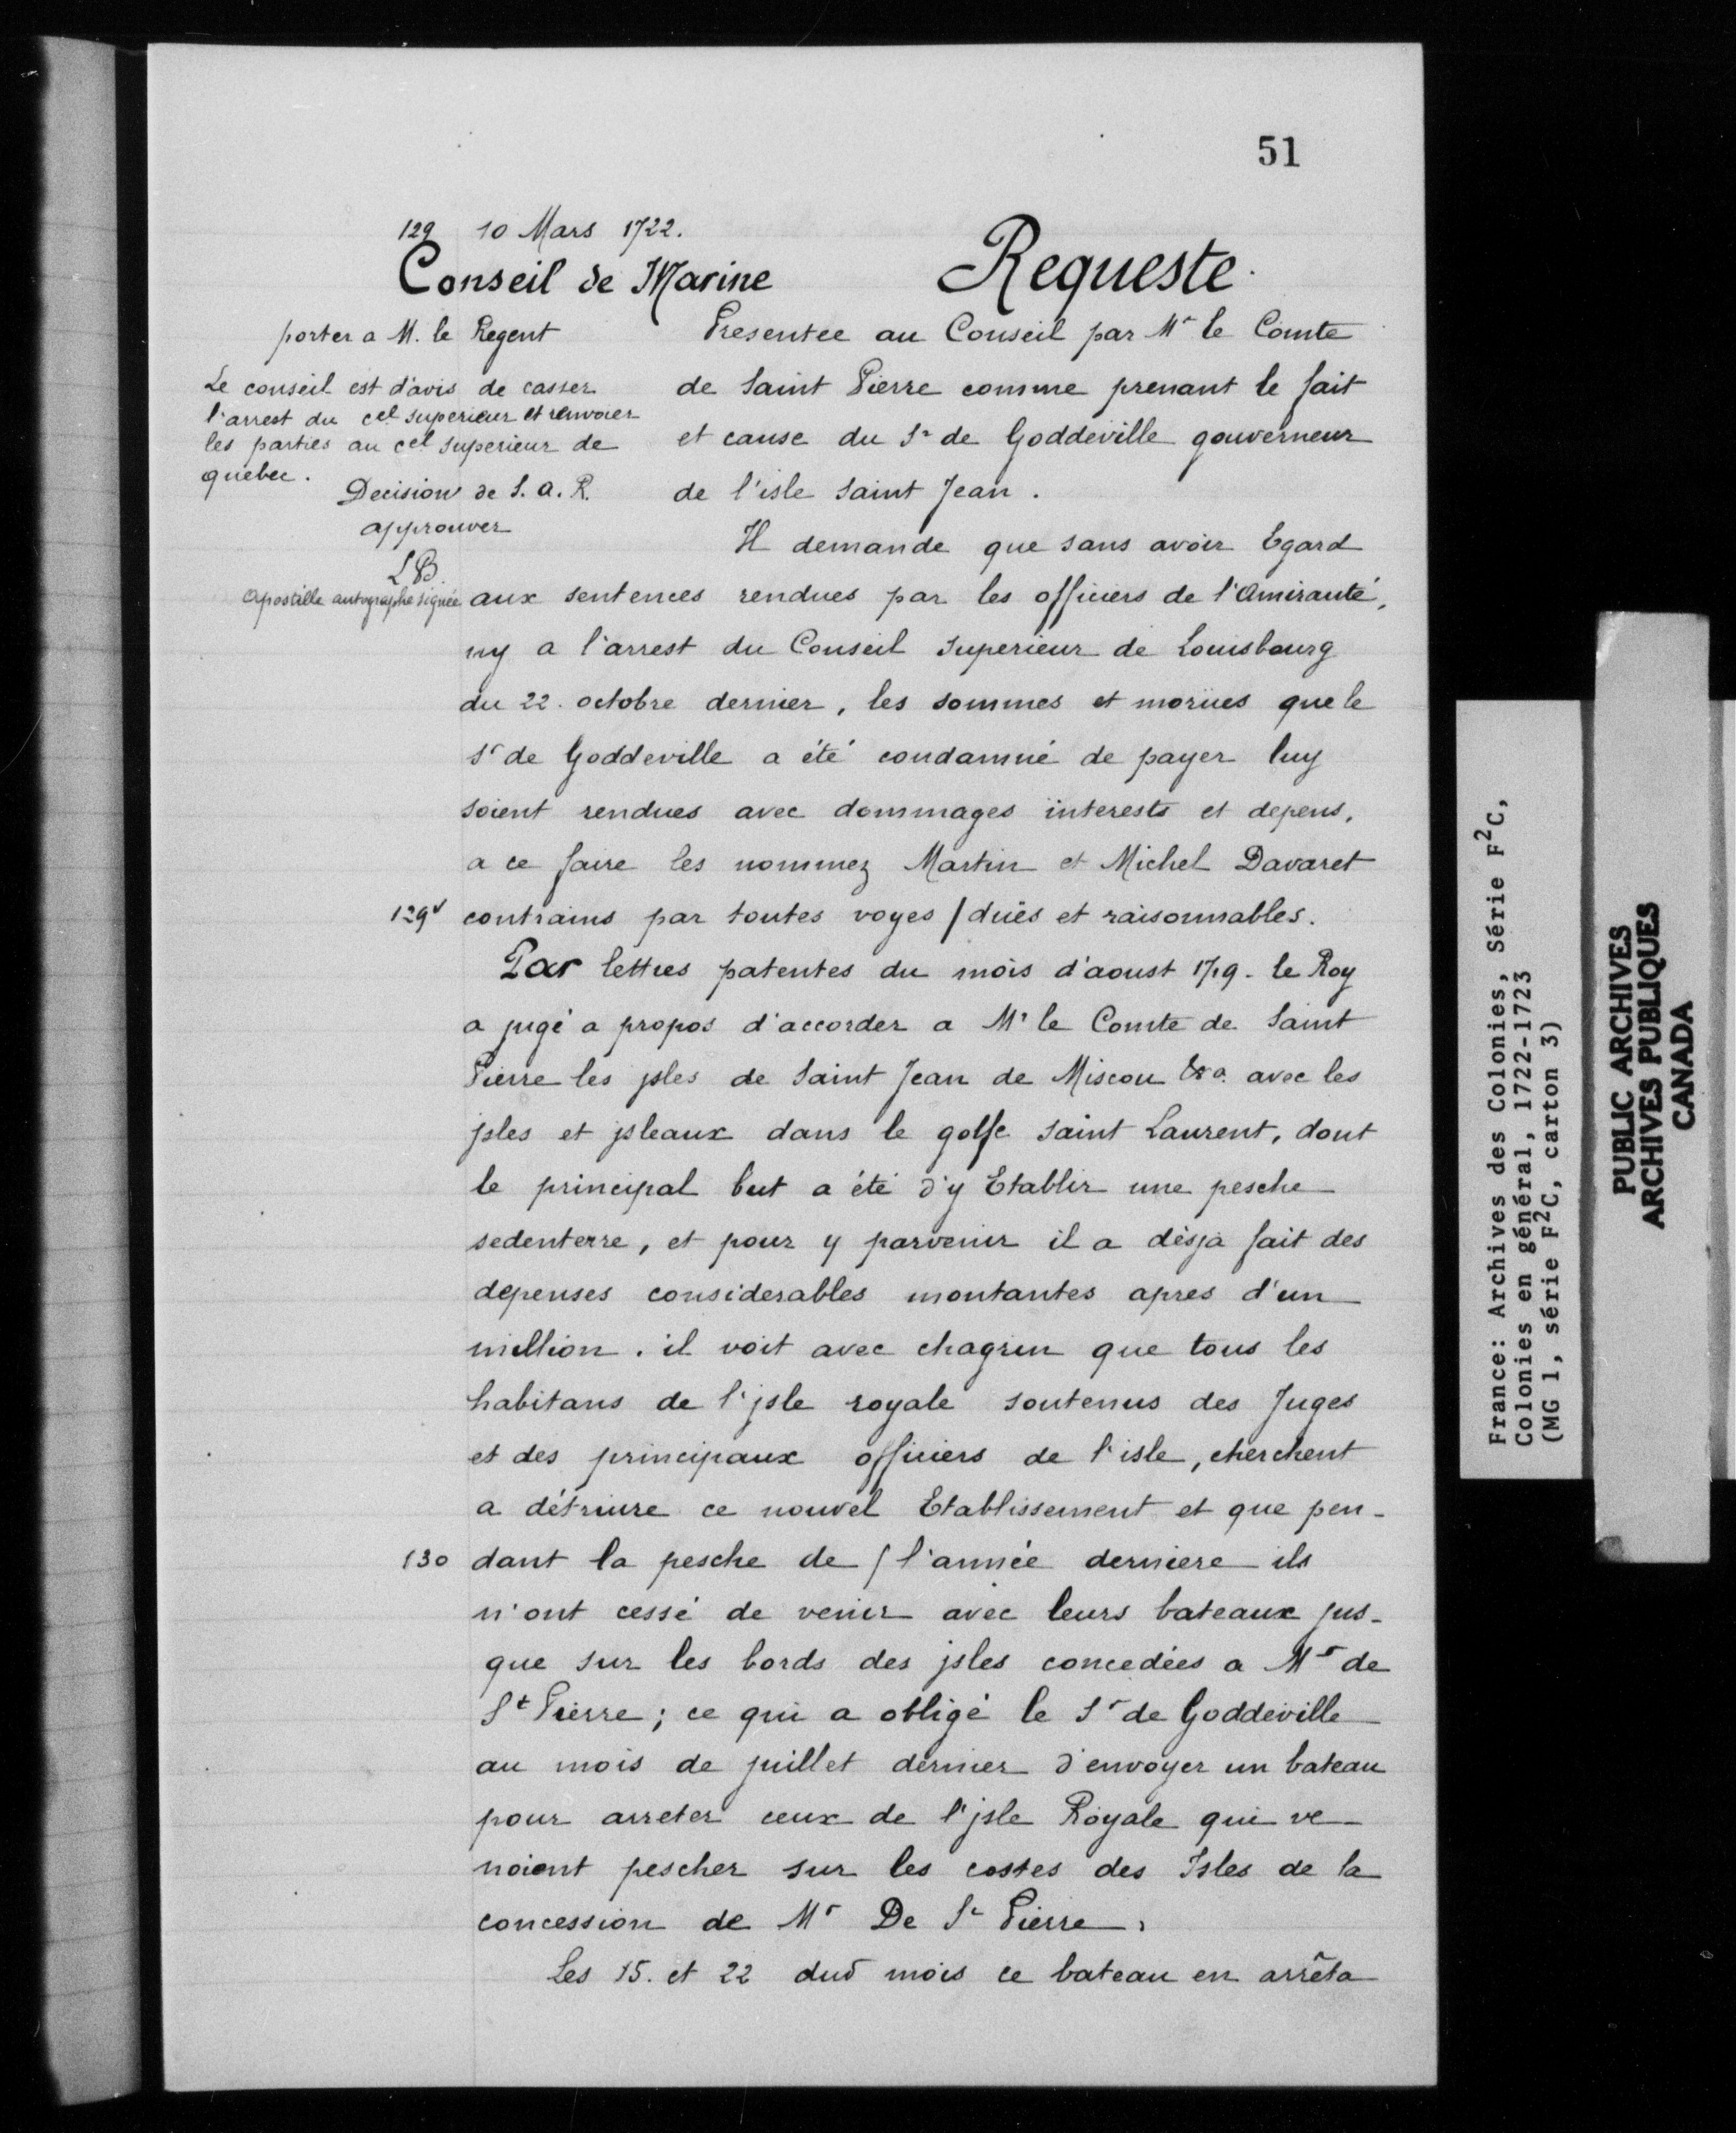 51
129 10 Mars 1722.
Conseil de Marine
porter a M. le Regent
Le conseil est d'avis de casser
l'arrest du cel superieur et renvoier
les parties au cel superieur de
quebec.
Decision de S. A. R.
approuver
LB.
apostille autographe signée
Requeste.
Presentée au Conseil par Mr le Comte
de Saint Pierre comme prenant le fait
et cause du Sr de Goddeville gouverneur
de l'isle Saint Jean.
Il demande que sans avoir Egard
aux sentences rendues par les officiers de l'Amirauté,
ny a l'arrest du Conseil Superieur de Louisbourg
du 22. octobre dernier, les sommes et moruës que le
Sr de Goddeville a été condamné de payer luy
soient rendues avec dommages interests et depens,
a ce faire les nommez Martin et Michel Davaret
129v contrains par toutes voyes / duës et raisonnables.
Par lettres patentes du mois d'aoust 1719. le Roy
a jugé a propos d'accorder a Mr le Comte de Saint
Pierre les jsles de Saint Jean de Miscou &a. avec les
jsles et jsleaux dans le golfe Saint Laurent, dont
le principal but a été d'y Etablir une pesche
sedenterre, et pour y parvenir il a désja fait des
depenses considerables montantes apres d'un
million. il voit avec chagrin que tous les
habitans de l'jsle royale soutenus des Juges
et des principaux officiers de l'isle, cherchent
a détruire ce nouvel Etablissement et que pen-
130 dant la pesche de / l'année derniere ils
n'ont cessé de venir avec leurs bateaux jus-
que sur les bords des jsles concedées a Mr de
St Pierre; ce qui a obligé le Sr de Goddeville
au mois de juillet dernier d'envoyer un bateau
pour arreter ceux de l'jsle Royale qui ve-
noient pescher sur les costes des Isles de la
concession de Mr De St Pierre,
Les 15. et 22 dud mois ce bateau en arrêta
France: Archives des Colonies, Série F2C,
Colonies en général, 1722-1723
(MG 1, série F2C, carton 3)
PUBLIC ARCHIVES
ARCHIVES PUBLIQUES
CANADA